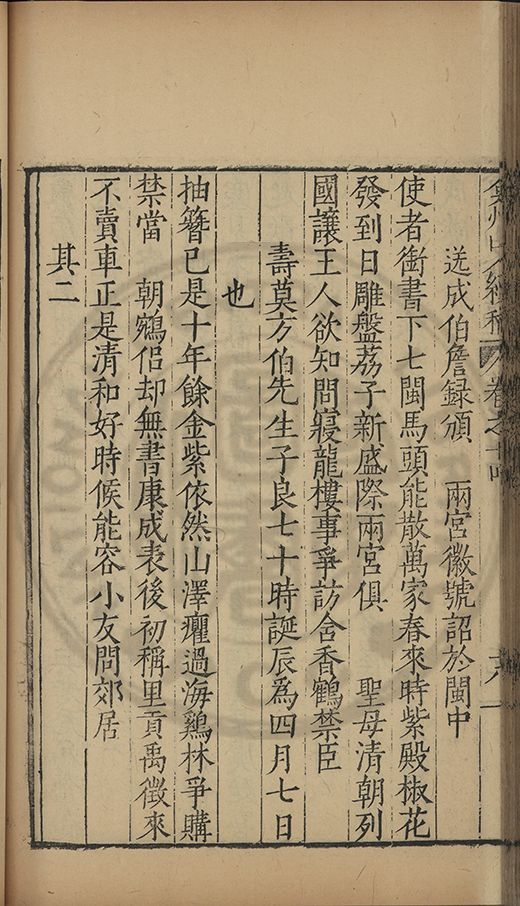 弇州山人續稿 卷之十四 六
送成伯詹録頒 兩宮徽號詔於閩中
使者銜書下七閩馬頭能散萬家春來時紫殿椒花
發到日雕盤荔子新盛際兩宮俱 聖母清朝列
國讓王人欲知問寢龍樓事爭訪含香鶴禁臣
壽莫方伯先生子良七十時誕辰爲四月七日
也
抽簪已是十年餘金紫依然山澤癯過海鷄林爭購
禁當 朝鵷侶却無書康成表後初稱里貢禹徵來
不賣車正是清和好時候能容小友問郊居
其二